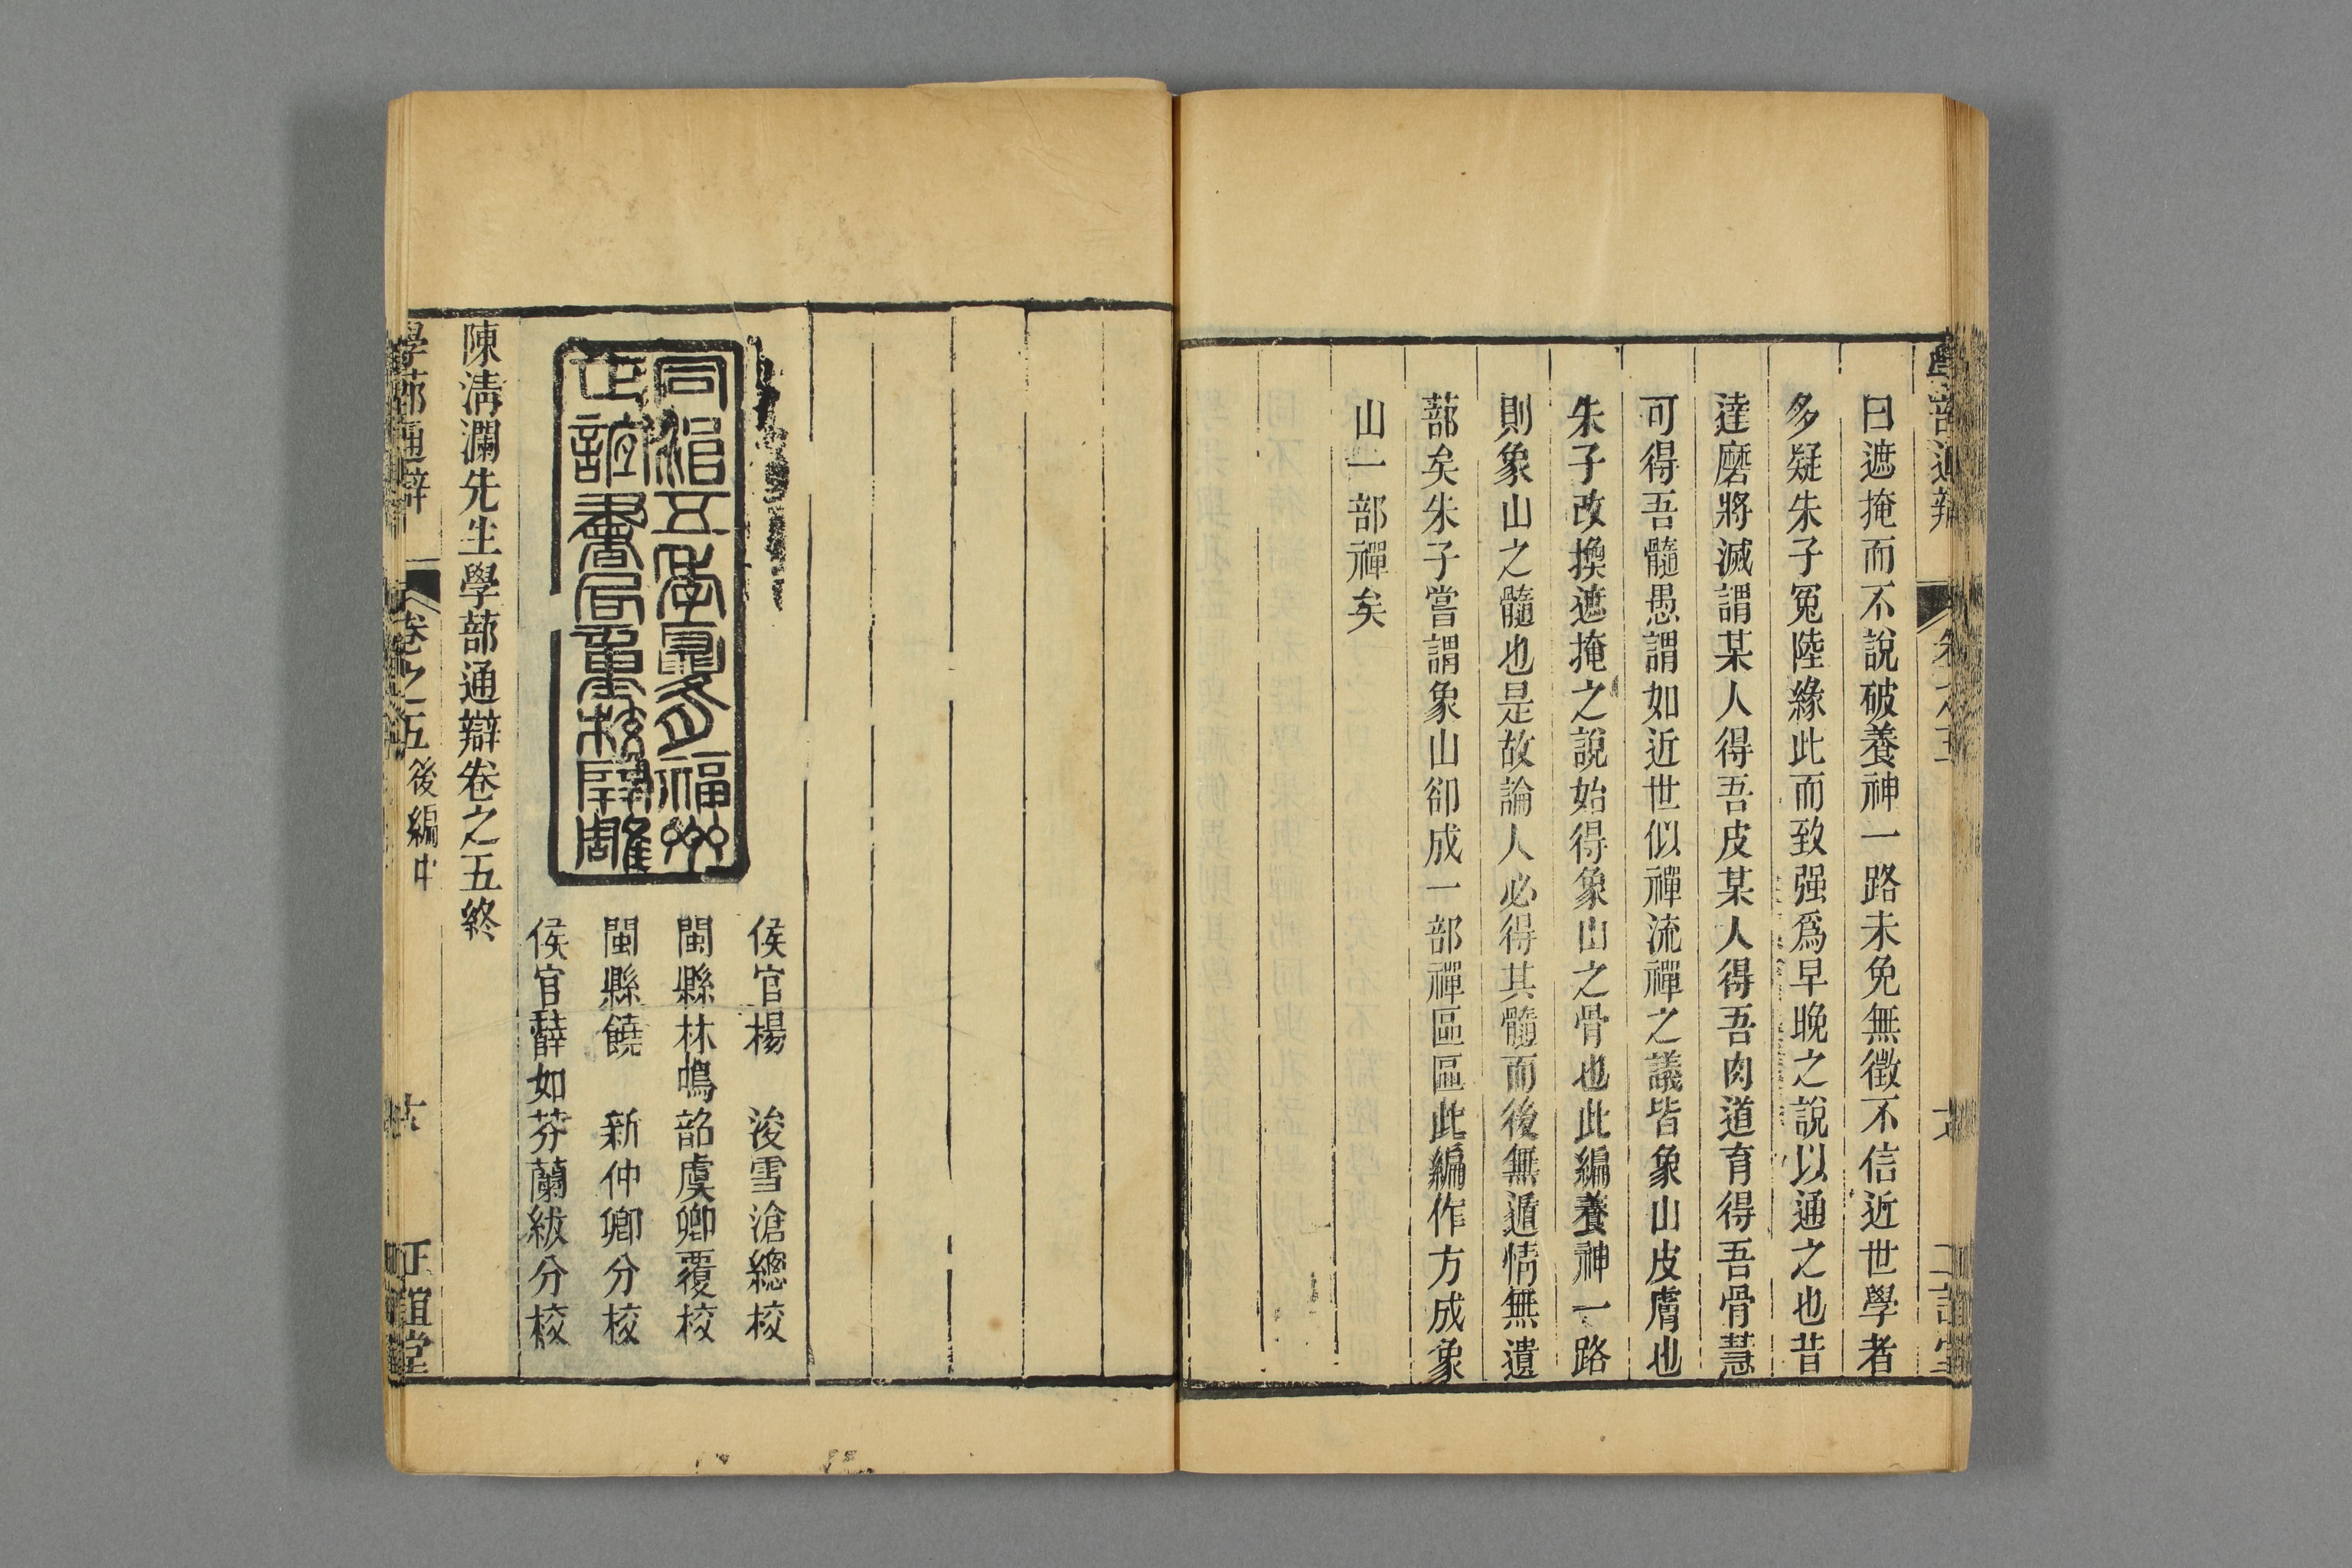 曰遮掩而不說破養神一路未免無徵不信近世學者
多疑朱子冤陸緣此而致强爲早晚之說以通之也昔
達磨將滅謂某人得吾皮某人得吾肉道育得吾骨慧
可得吾髓愚謂如近世似禪流禪之議皆象山皮膚也
朱子改換遮掩之說始得象山之骨也此編養神一路
則象山之髓也是故論人必得其髓而後無遁情無遺
蔀矣朱子嘗謂象山卻成一部禪區區此編作方成象
山一部禪矣
侯官楊　浚雪滄總校
閩縣林鳴韶虞卿覆校
閩縣饒　新仲卿分校
侯官薛如芬蘭紱分校
同治五年夏月福州
正誼書局重校開雕
陳淸瀾先生學蔀通辯卷之五終
學蔀通辯
卷之五後編中
正誼堂